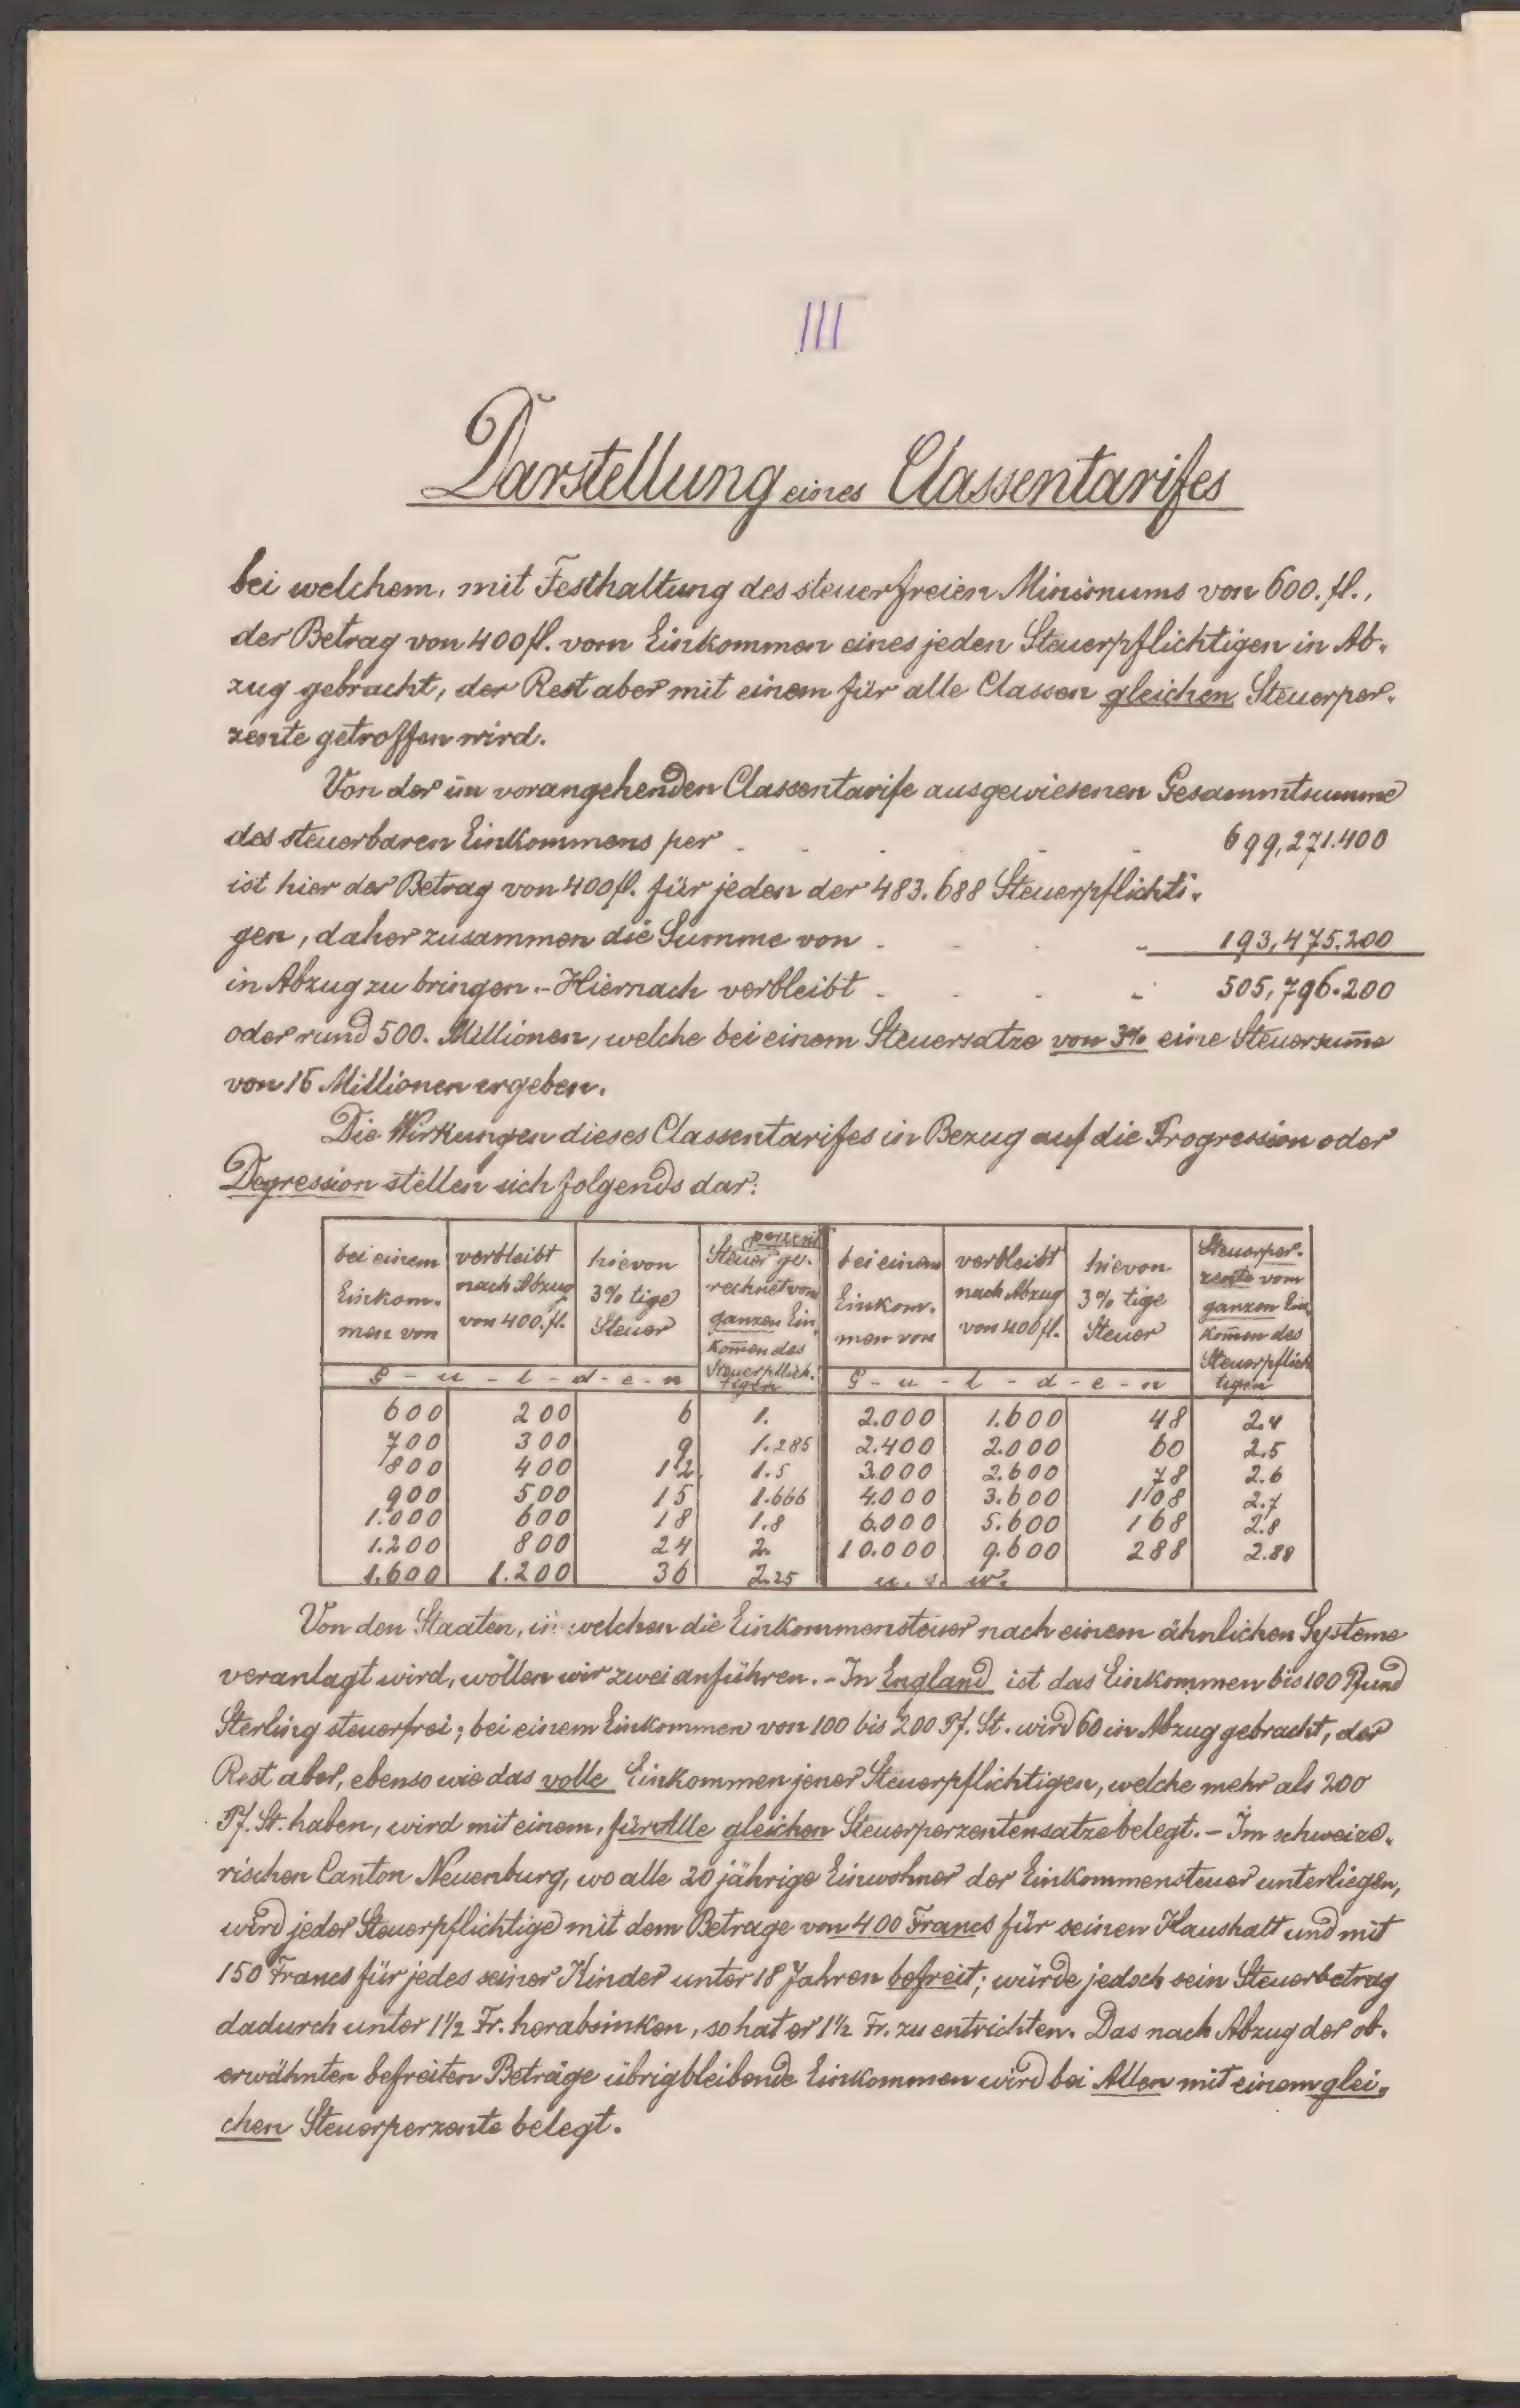 III
Darstellung eines Classentarifes
bei welchem, mit Festhaltung des steuerfreien Minimums von 600. fl.,
der Betrag von 400 fl. vom Einkommen eines jeden Steuerpflichtigen in Ab-
zug gebracht, der Rest aber mit einem für alle Classen gleichen Steuerper-
zente getroffen wird.
Von der im vorangehenden Classentarife ausgewiesenen Gesammtsumme
des steuerbaren Einkommens per . . . . . 699,271.400
ist hier der Betrag von 400 fl. für jeden der 483.688 Steuerpflichti-
gen, daher zusammen die Summe von . . . . 193,475.200
in Abzug zu bringen. - Hiernach verbleibt . . . . 505,796.200
oder rund 500. Millionen, welche bei einem Steuersatze von 3% eine Steuersum̄e
von 15 Millionen ergeben.
Die Wirkungen dieses Classentarifes in Bezug auf die Progression oder
Degression stellen sich folgends dar:
bei einem Einkom- men von | verbleibt nach Abzug von 400. fl. | hievon 3% tige Steuer | Steuerperzent ge- rechnet vom ganzen Ein- kom̄en des Steuerpflich- tigen | bei einem Einkom- men von | verbleibt nach Abzug von 400 fl. | hievon 3% tige Steuer | Steuerper- zente vom ganzen Ein- kom̄en des Steuerpflich tigen
G - u - l - d - e - n | G - u - l - d - e - n
600 | 200 | 6 | 1. | 2.000 | 1.600 | 48 | 2.4
700 | 300 | 9 | 1.285 | 2.400 | 2.000 | 60 | 2.5
800 | 400 | 12 | 1.5 | 3.000 | 2.600 | 78 | 2.6
900 | 500 | 15 | 1.666 | 4.000 | 3.600 | 108 | 2.7
1.000 | 600 | 18 | 1.8 | 6.000 | 5.600 | 168 | 2.8
1.200 | 800 | 24 | 2. | 10.000 | 9.600 | 288 | 2.88
1.600 | 1.200 | 36 | 2.25 | u. s. w.
Von den Staaten, in welchen die Einkommensteuer nach einem ähnlichen Systeme
veranlagt wird, wollen wir zwei anführen. - In England ist das Einkommen bis 100 Pfund
Sterling steuerfrei; bei einem Einkommen von 100 bis 200 Pf. St. wird 60 in Abzug gebracht, der
Rest aber, ebenso wie das volle Einkommen jener Steuerpflichtigen, welche mehr als 200
Pf. St. haben, wird mit einem, für Alle gleichen Steuerperzentensatze belegt. - Im schweize-
rischen Canton Neuenburg, wo alle 20 jährige Einwohner der Einkommensteuer unterliegen,
wird jeder Steuerpflichtige mit dem Betrage von 400 Francs für seinen Haushalt und mit
150 Francs für jedes seiner Kinder unter 18 Jahren befreit; würde jedoch sein Steuerbetrag
dadurch unter 1½ Fr. herabsinken, so hat er 1½ Fr. zu entrichten. Das nach Abzug der ob-
erwähnten befreiten Beträge übrigbleibende Einkommen wird bei Allen mit einem glei-
chen Steuerperzente belegt.